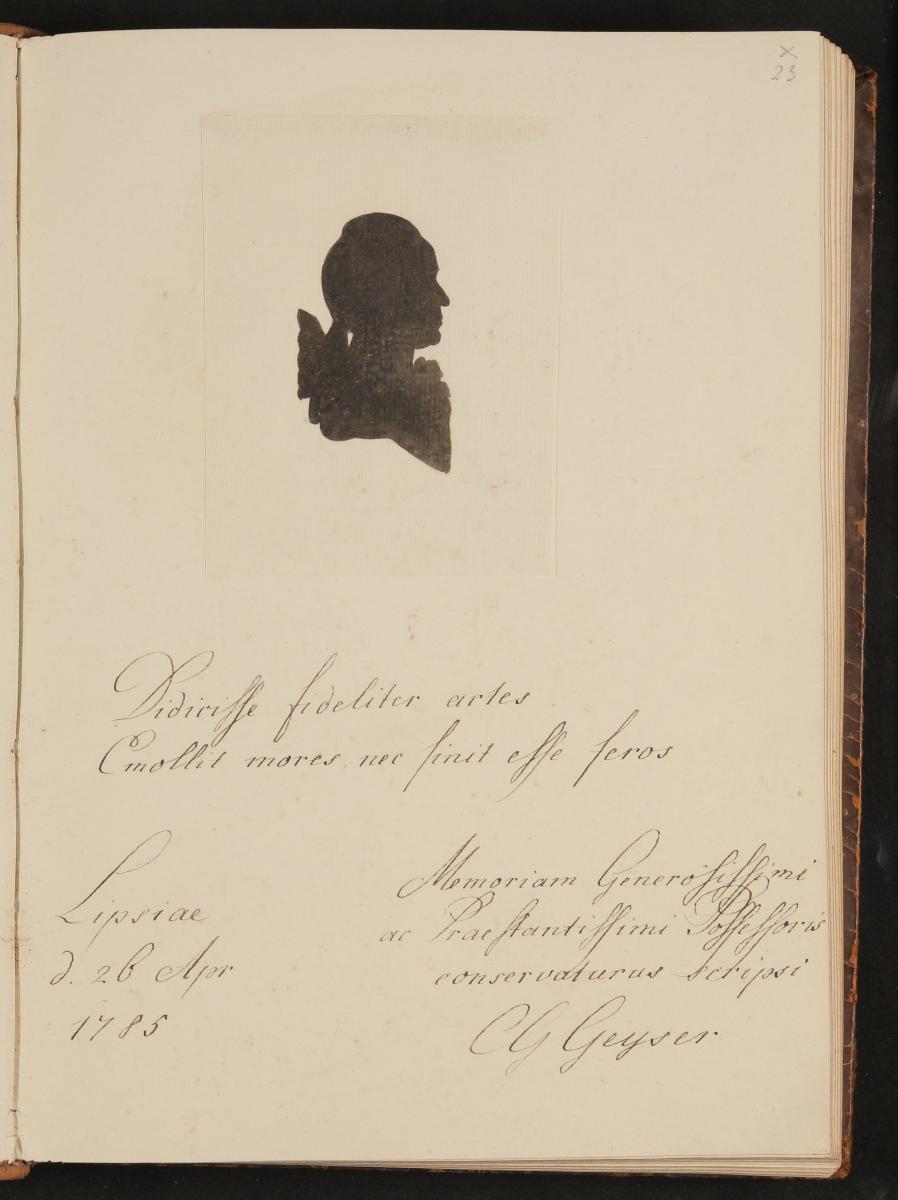 x
23
Didicisse fideliter artes
Emollit mores, nec sinit esse feros
Lipsiae
d. 26 Apr
1785
Memoriam Generosissimi
ac Praestantissimi Possessoris
conservaturus scripsi
CG Geyser